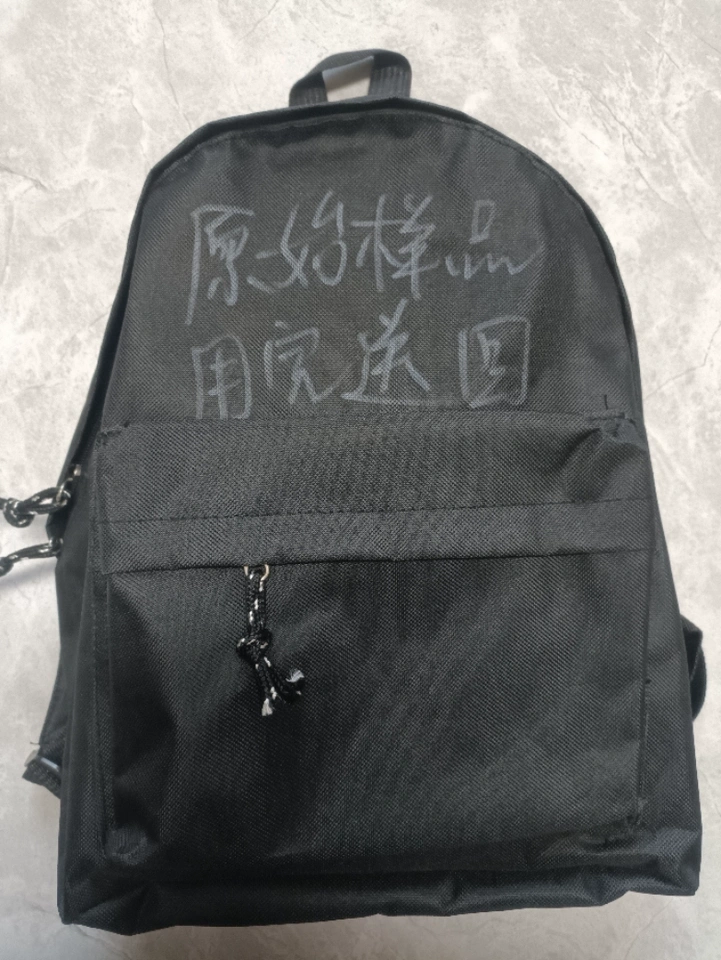 原始样品
用完送回